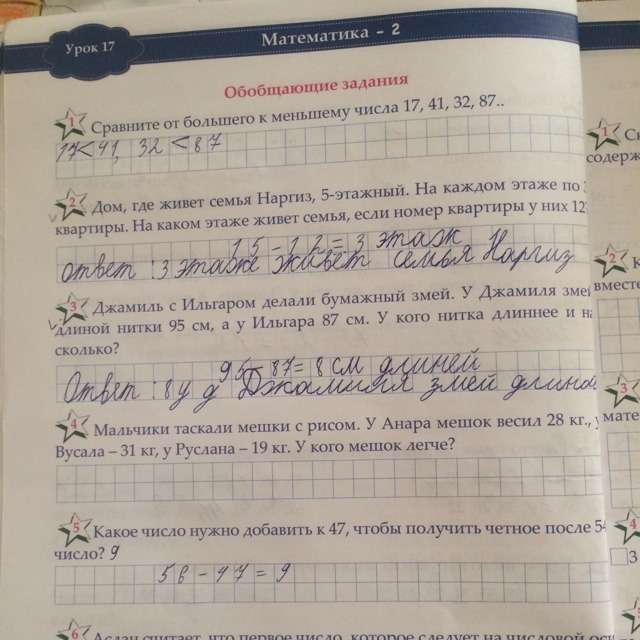 Урок 17
Математика – 2
Обобщающие задания
1 Сравните от большего к меньшему числа 17, 41, 32, 87..
17<41, 32<87
2 Дом, где живет семья Наргиз, 5-этажный. На каждом этаже по 3
квартиры. На каком этаже живет семья, если номер квартиры у них 12?
15-12=3 этаж
ответ: 3 этаже живёт семья Наргиз
3 Джамиль с Ильгаром делали бумажный змей. У Джамиля змей
длиной нитки 95 см, а у Ильгара 87 см. У кого нитка длиннее и на
сколько?
95-87=8 см длиней
Ответ: 8 у Джамиля змей
4 Мальчики таскали мешки с рисом. У Анара мешок весил 28 кг., у
Вусала – 31 кг, у Руслана – 19 кг. У кого мешок легче?
5 Какое число нужно добавить к 47, чтобы получить четное после 54
число? 9
56-47=9
6 Аслан считает, что первое число, которое следует на числовой оси
1 Ск
содерж
2 К
вместе
3
мате
4
3